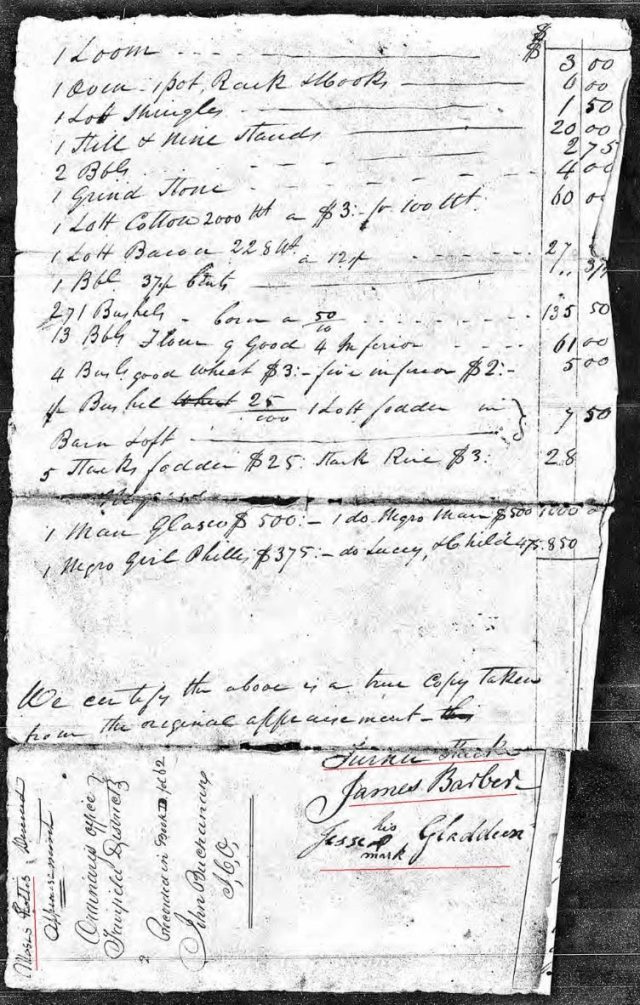 $
1 Loom 3 00
1 Oven 1 pot, Rack & Hooks 6 00
1 Lot Shingles 1 50
1 Still & Nine Stands 20 00
2 Bbls 2 75
1 Grind Stone 4 00
1 Lott Cotton 2000 Wt a $3:- pr 100 Wt 60 00
1 Lott Bacon 228 Wt a 12 27
1 Bbl. 37
271 Bushels corn a 50 135 50
13 Bbls Flour 9 Good 4 Inferior 61 00
4 Bush. good wheat $3:- five inferior $2:- 5 00
Bushel 25/100 1 Lott fodder in
Barn Loft 7 50
5 Stacks fodder $25: Stack Rice $3: 28
1 Man $500:- 1 do. Negro Man $500 1000 00
1 Negro Girl Phillis $375:- do Lucey, & Child 475. 850
We certify the above is a true Copy Taken
from the original appraisement
Turner Stack
James Barber
his
Jesse Gladden
mark
Moses
Appraisement
Ordinarys office
Fairfield District
Recorded in Book
John Buchanan